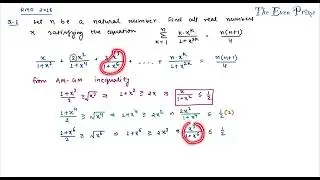 The Even Prime
RMO 2018
Q.2 Let n be a natural number. Find all real numbers
x satisfying the equation \sum_{k=1}^{n} \frac{k \cdot x^k}{1+x^{2k}} = \frac{n(n+1)}{4}
\frac{x}{1+x^2} + \frac{2x^2}{1+x^4} + \frac{3x^3}{1+x^6} + ..... + \frac{n \cdot x^n}{1+x^{2n}} = \frac{n(n+1)}{4}
from AM-GM inequality
\frac{1+x^2}{2} \geq \sqrt{x^2} ⇒ 1+x^2 \geq 2x ⇒ \frac{x}{1+x^2} \leq \frac{1}{2}
\frac{1+x^4}{2} \geq \sqrt{x^4} ⇒ 1+x^4 \geq 2x^2 ⇒ \frac{2x^2}{1+x^4} \leq \frac{1}{2}(2)
\frac{1+x^6}{2} \geq \sqrt{x^6} ⇒ 1+x^6 \geq 2x^3 ⇒ \frac{x^3}{1+x^6} \leq \frac{1}{2}